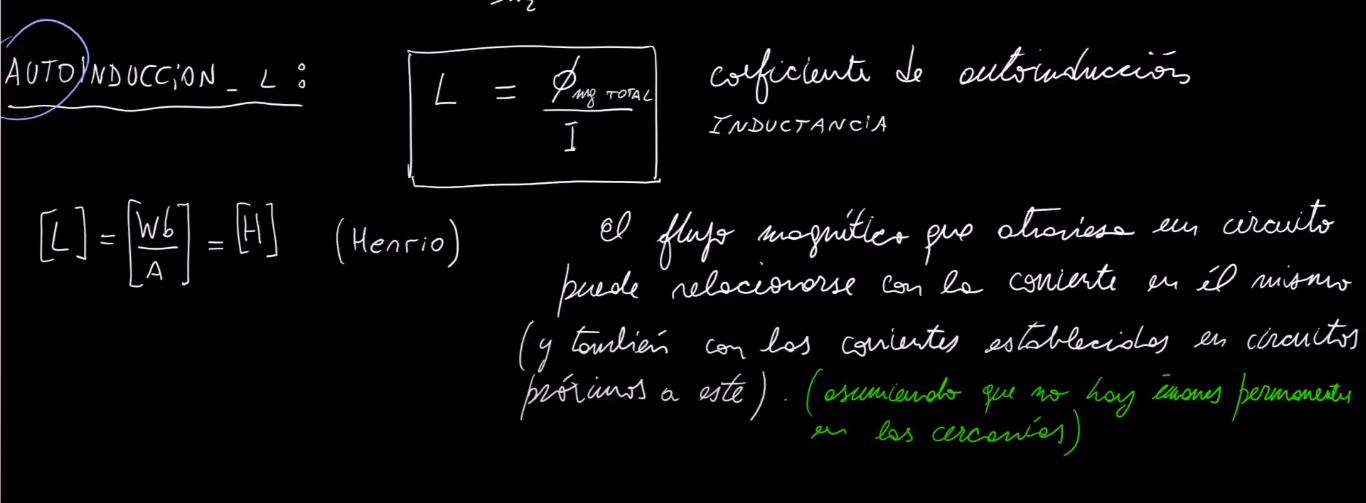 AUTOINDUCCIÓN _ L :
L = ϕmg TOTAL / I
coeficiente de autoinducción
INDUCTANCIA
[L] = [Wb / A] = [H] (Henrio)
el flujo magnético que atraviesa un circuito
puede relacionarse con la corriente en él mismo
(y también con las corrientes establecidas en circuitos
próximos a este). (asumiendo que no hay imanes permanentes
en las cercanías)